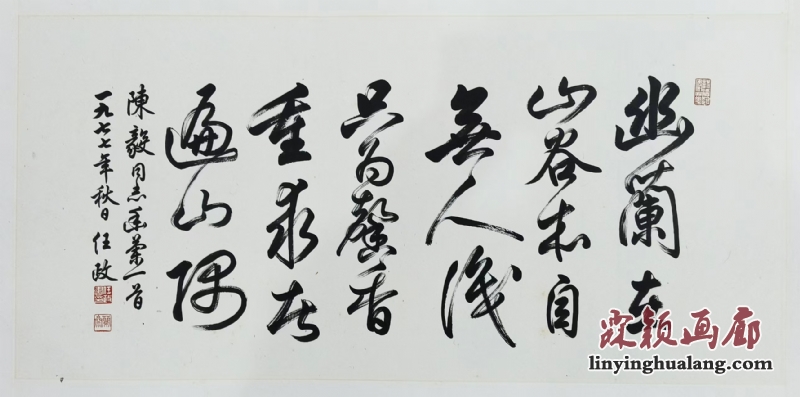 幽蘭在
山谷本自
無人識
只為馨香
重求者
遍山隅
陳毅同志幽蘭一首
一九七七年秋日任政
霖颖画廊
linyinghualang.com